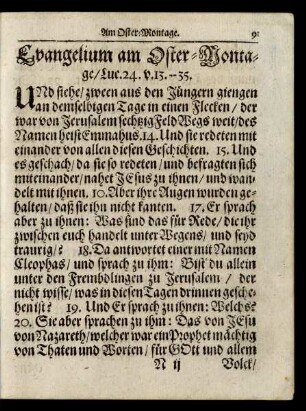 Am Oster-Montage. 91
Evangelium am Oster-Monta-
ge/ Luc. 24. v. 13.--35.
UNd siehe/ zween aus den Jüngern giengen
an demselbigen Tage in einen Flecken/ der
war von Jerusalem sechzig Feld Wegs weit/ des
Namen heist Emmahus. 14. Und sie redeten mit
einander von allen diesen Geschichten. 15. Und
es geschach/ da sie so redeten/ und befragten sich
miteinander/ nahet JEsus zu ihnen/ und wan-
delt mit ihnen. 16. Aber ihre Augen wurden ge-
halten/ daß sie ihn nicht kanten. 17. Er sprach
aber zu ihnen: Was sind das für Rede/ die ihr
zwischen euch handelt unter Wegens/ und seyd
traurig? 18. Da antwortet einer mit Namen
Cleophas/ und sprach zu ihm: Bist du allein
unter den Frembdlingen zu Jerusalem/ der
nicht wisse/ was in diesen Tagen drinnen gesche-
hen ist? 19. Und Er sprach zu ihnen: Welchs?
20. Sie aber sprachen zu ihm: Das von JEsu
von Nazareth/ welcher war ein Prophet mächtig
von Thaten und Worten/ für GOtt und allem
N ij Volck/